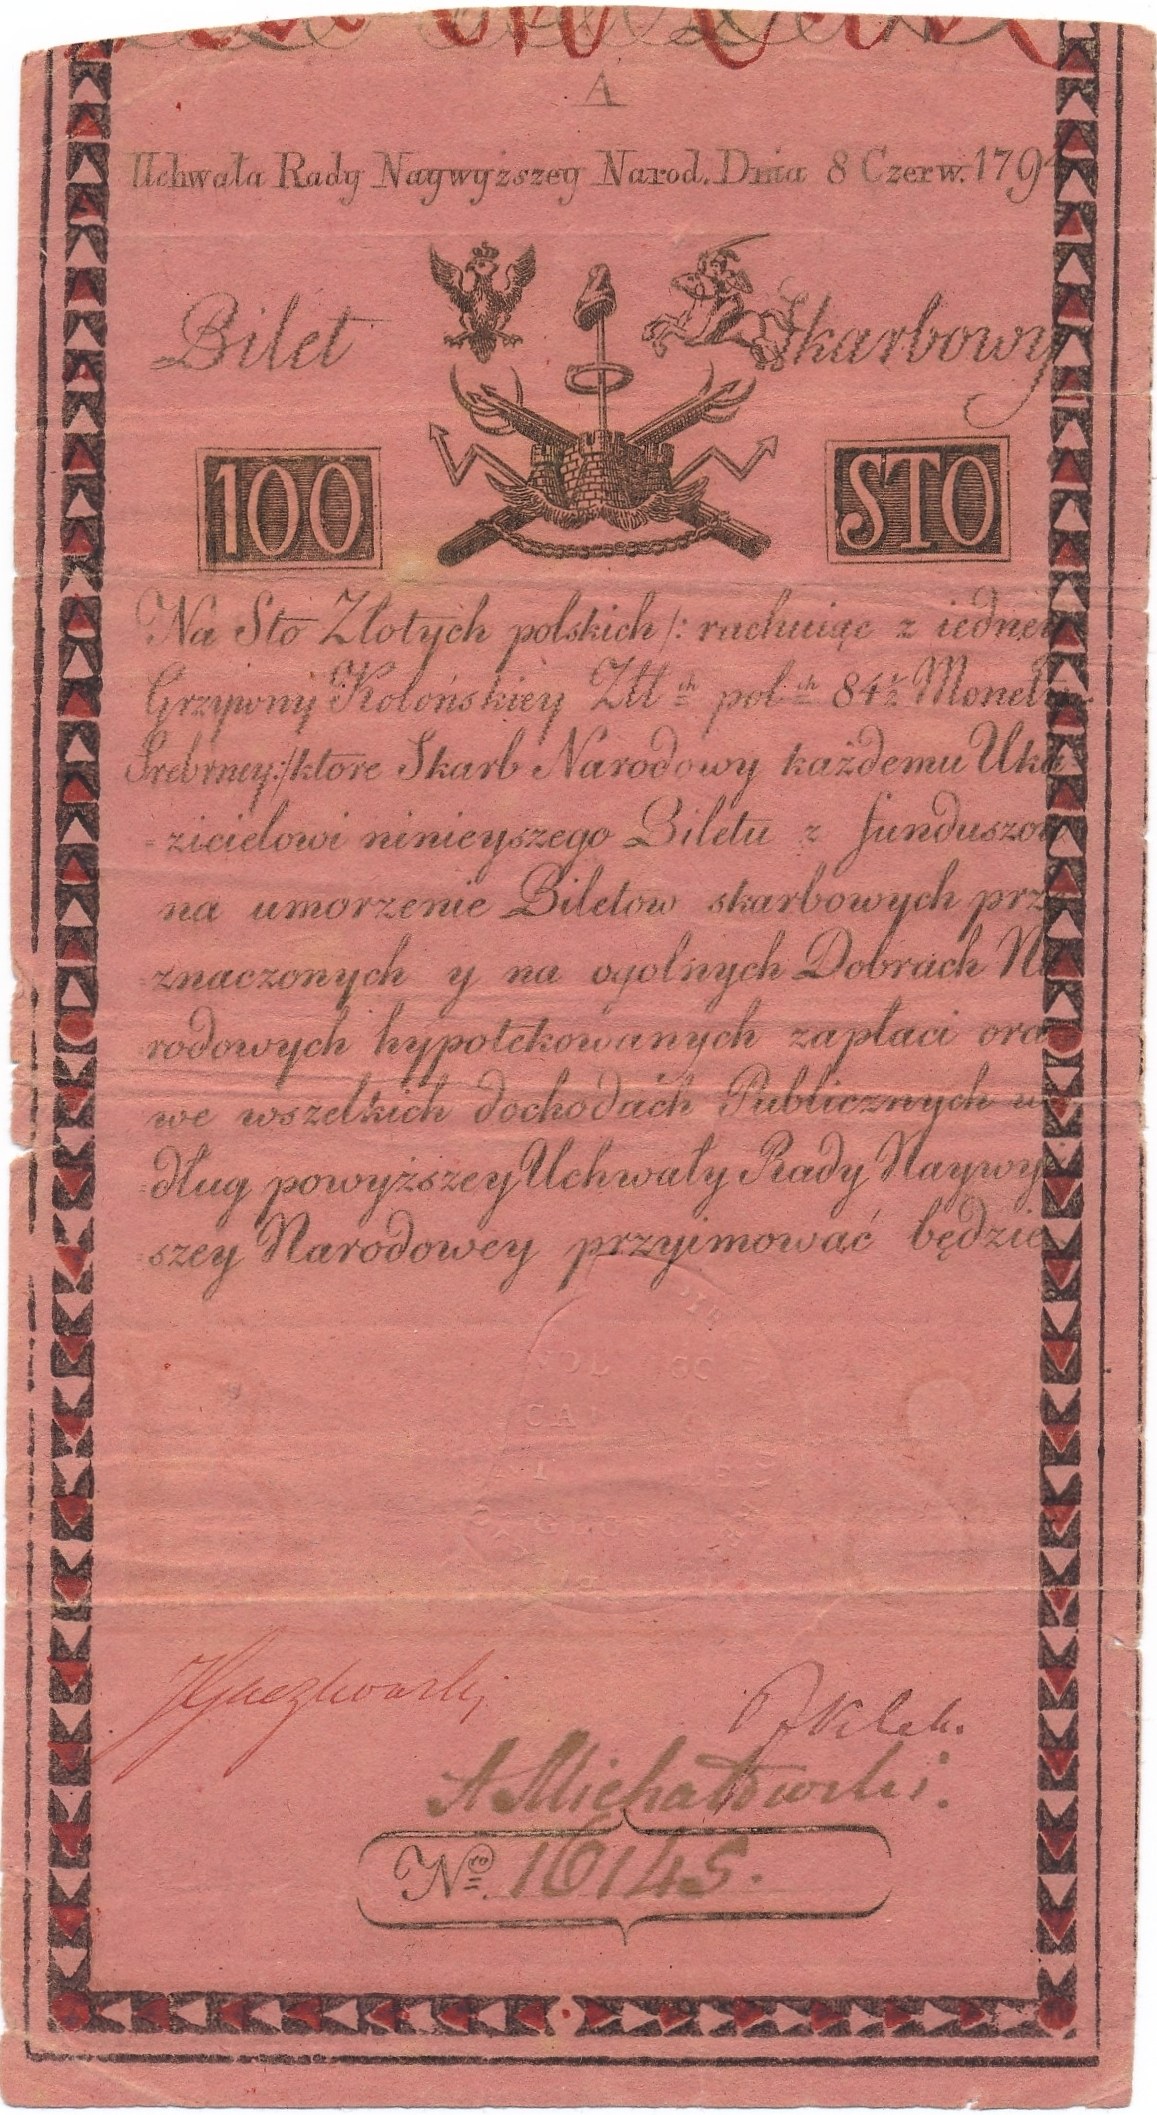 A
Uchwała Rady Naywyzszey Narod. Dnia 8 Czerw. 179
Bilet Skarbowy
100 STO
Na Sto Złotych polskich /: rachuiąc z iedney
Grzywny Kolońskiey Złł ch pol ch 84½ Monety
Srebrney :/ ktore Skarb Narodowy każdemu Uka
= zicielowi ninieyszego Biletu z funduszow
na umorzenie Biletow skarbowych prze
= znaczonych y na ogolnych Dobrach Na
= rodowych hypotekowanych zapłaci oraz
we wszelkich dochodach Publicznych we
= dług powyższey Uchwały Rady Naywyż
= szey Narodowey przyimować będzie
A Michałowski.
Nro 16145.